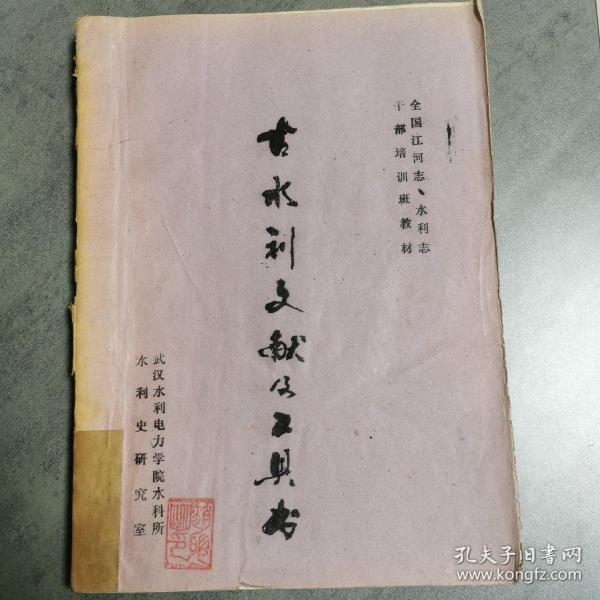 全国江河志、水利志
干部培训班教材
古水利文献及工具书
武汉水利电力学院水科所
水利史研究室
孔夫子旧书网
www.kongfz.com